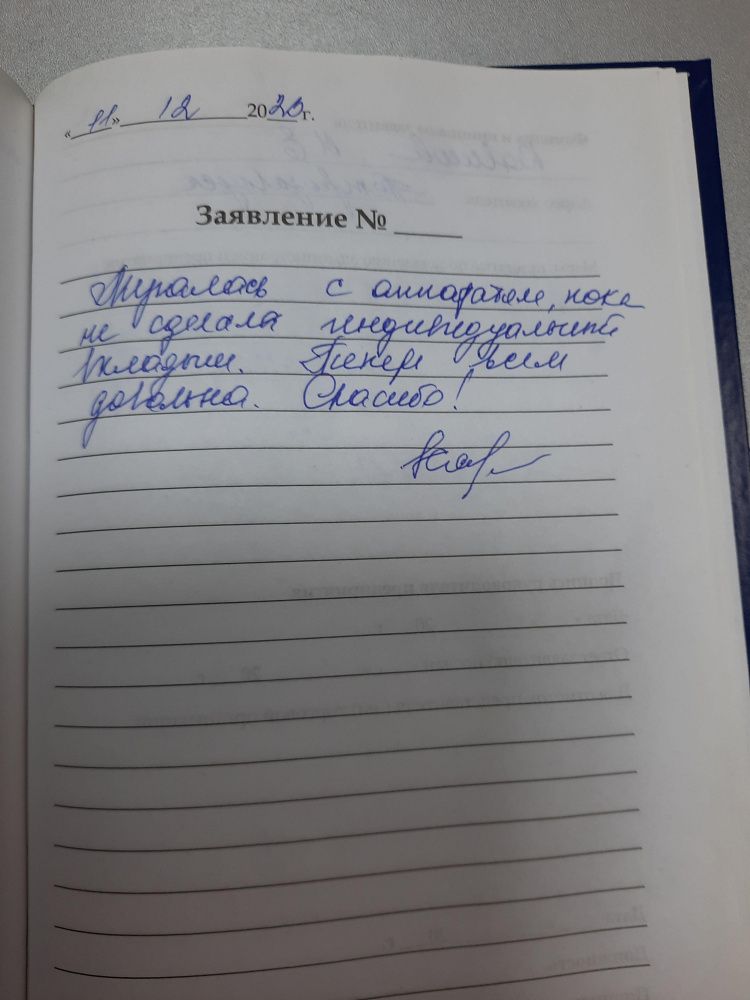 «11» 12 2020 г.
Заявление № ____
Игралась с аппаратом, пока
не сделала индивидуальный
вкладыш. Теперь всем
довольна. Спасибо!